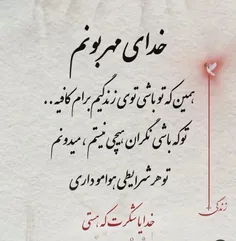 خدای مهربونم
همین که تو باشی توی زندگیم برام کافیه..
تو که باشی نگران هیچی نیستم ، میدونم
تو هر شرایطی هوامو داری
خدایا شکرت که هستی
زندگی